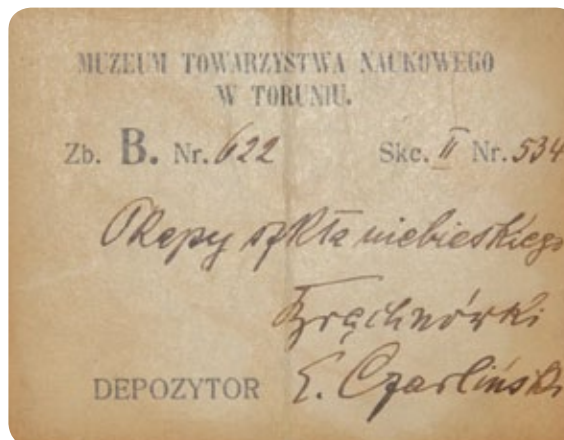 MUZEUM TOWARZYSTWA NAUKOWEGO
W TORUNIU.
Zb. B. Nr. 622 Skc. II Nr. 534
szkła niebieskiego
Brąchnówki
DEPOZYTOR E. Czarliński